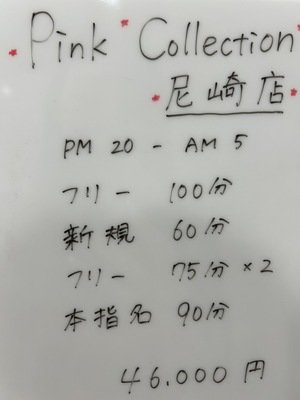 Pink Collection
尼崎店
PM 20 - AM 5
フリー 100分
新規 60分
フリー 75分 ×2
本指名 90分
46.000 円